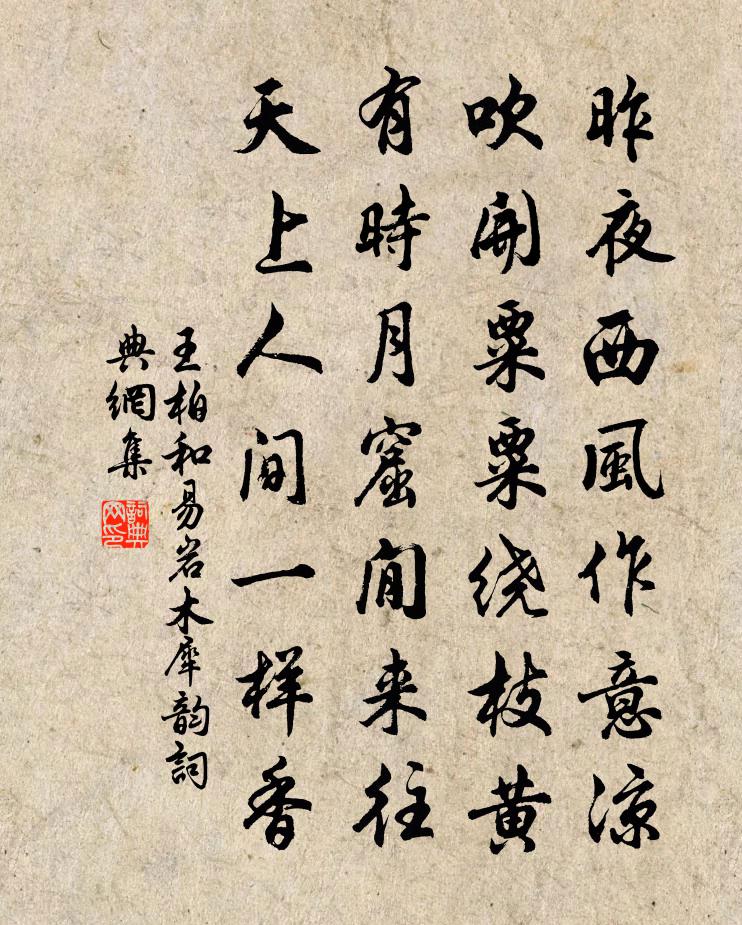 昨夜西風作意凉
吹開粟粟绕枝黄
有時月窟閒来往
天上人间一样香
王柏和易岩木犀韵詞
典網集
詞典
网印